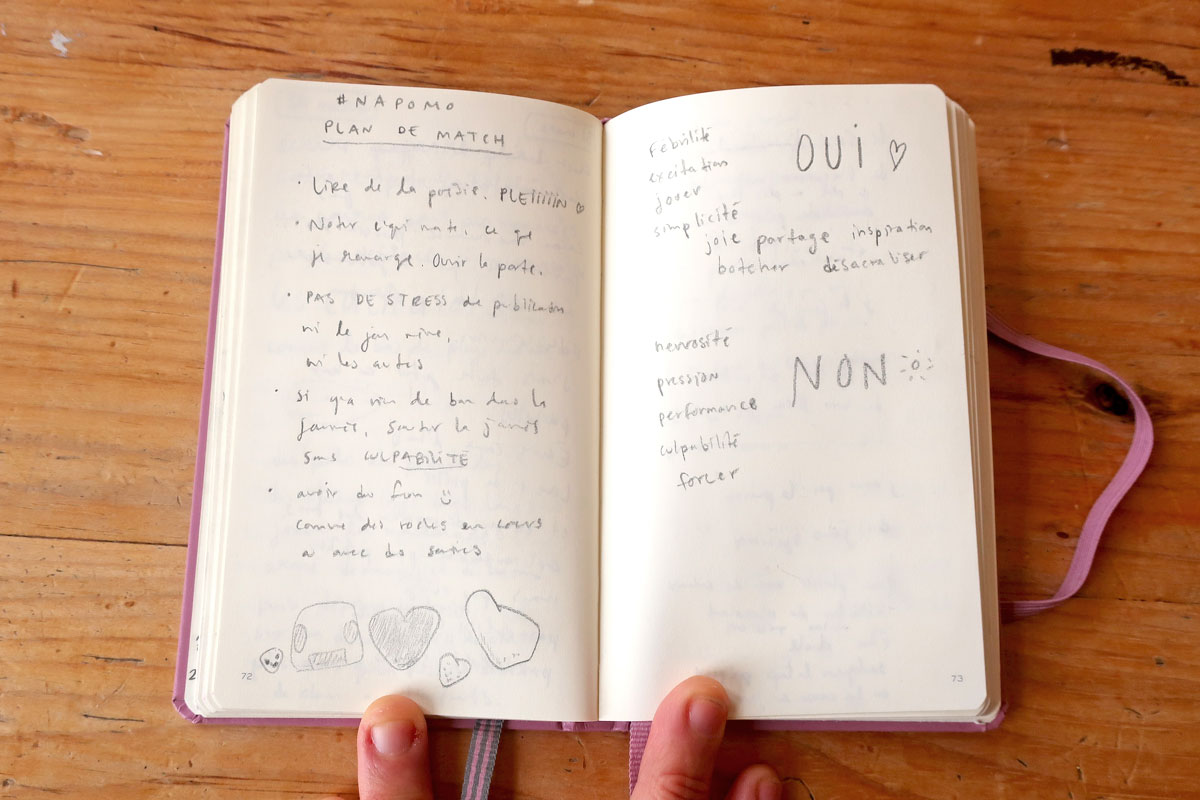 #NAPOMO
PLAN DE MATCH
• Lire de la poésie. PLEIIIIIN ♡
• Noter c'qui reste, ce que
je remarque. Ouvrir la porte.
• PAS DE STRESS de publication
ni le jour même,
ni les autres
• si y'a rien de bon dans la
journée, sauter la journée
sans CULPABILITÉ
• avoir du fun
comme des roches en coeurs
avec des
72
OUI ♡
fébrilité
excitation
jouer
simplicité
joie partage inspiration
botcher désacraliser
NON
nervosité
pression
performance
culpabilité
forcer
73